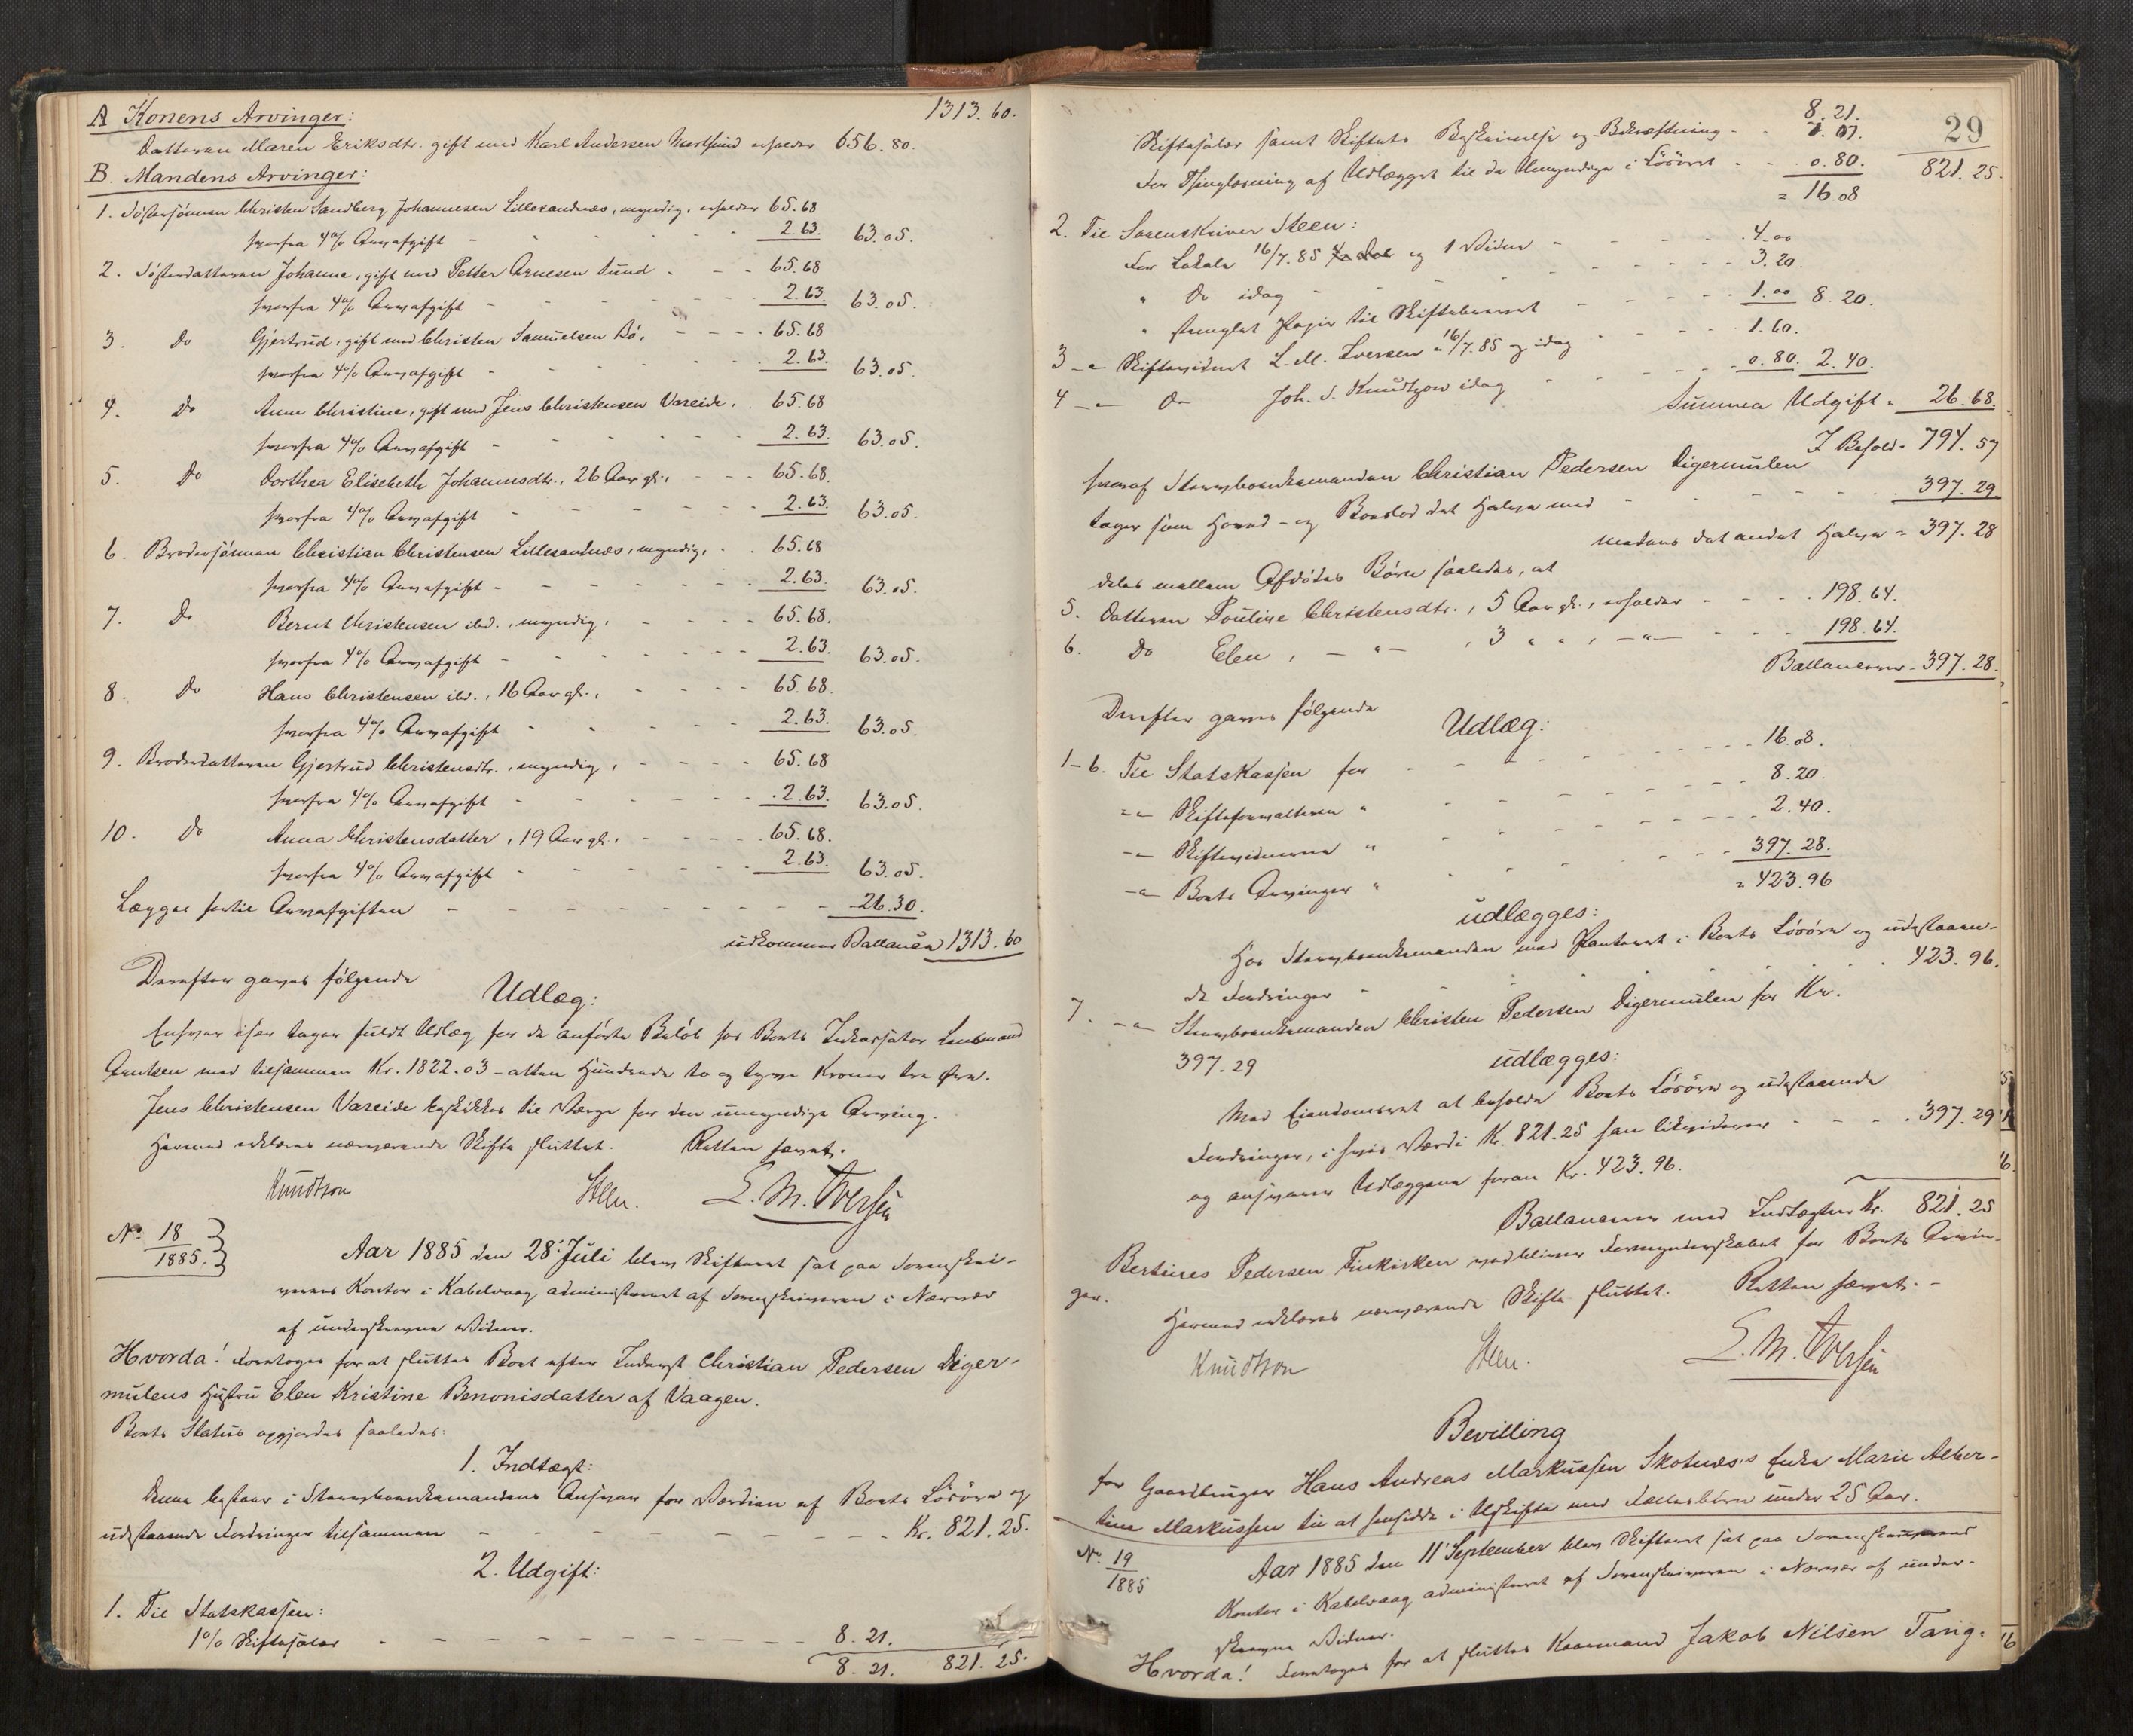 1313.60.
A Konens Arvinger:
Datteren Maren Eriksdtr. gift med Karl Andersen Mortsund erholder 656.80.
B. Mandens Arvinger:
1. Søstersønnen Christen Sandberg Johannesen Lillesandnæs, myndig, erholder 65.68
hvorfra 4% Arveafgift - - - - 2.63. 63.05.
2. Søsterdatteren Johanna, gift med Petter Arnesen Sund - - - 65.68
hvorfra 4% Arveafgift - - - - 2.63. 63.05.
3. Do Gjertrud, gift med Christen Samuelsen Bø, - - - 65.68
hvorfra 4% Arveafgift - - - - 2.63. 63.05.
4. Do Anne Christine, gift med Jens Christensen Vareide, 65.68
hvorfra 4% Arveafgift - - - - 2.63. 63.05.
5. Do Dorthea Elisebeth Johannsdtr., 26 Aar gl., - - - 65.68.
hvorfra 4% Arveafgift - - - - 2.63. 63.05.
6. Brodersønnen Christian Christensen Lillesandnæs, myndig, - 65.68
hvorfra 4% Arveafgift - - - - 2.63. 63.05.
7. Do Bernt Christensen ibd., myndig, - - - 65.68.
hvorfra 4% Arveafgift - - - - 2.63. 63.05.
8. Do Hans Christensen ibd., 16 Aar gl., - - - 65.68.
hvorfra 4% Arveafgift - - - - 2.63. 63.05.
9. Broderdatteren Gjertrud Christensdtr., myndig, - - - 65.68
hvorfra 4% Arveafgift - - - - 2.63. 63.05.
10. Do Anna Christensdatter, 19 Aar gl., - - - 65.68.
hvorfra 4% Arveafgift - - - - 2.63. 63.05.
Lægges hertil Arveafgiften - - - - 26.30.
udkommer Ballancen 1313.60
Derefter gaves følgende
Udlæg:
Enhver især tager fuldt Udlæg for de anførte Beløb hos Boets Inkassator Lensmand
Arntsen med tilsammen Kr. 1822.03 - atten Hundrede to og tyve Kroner tre Øre.
Jens Christensen Vareide beskikkes til Værge for den umyndige Arving.
Hermed erklæres nærværende Skifte sluttet. Retten hævet.
Knudtson Steen. L. M. Iversen
No. 18
1885.
Aar 1885 den 28. Juli blev Skifteret sat paa Sorenskri-
verens Kontor i Kabelvaag administreret af Sorenskriveren i Nærvær
af underskrevne Vidner.
Hvorda! Foretoges for at sluttes Boet efter Inderst Christian Pedersen Diger-
mulens Hustru Elen Kristine Benonisdatter af Vaagen.
Boets Status opgjordes saaledes:
1. Indtægt:
Denne bestaar i Stervboenkemandens Ansvar for Værdien af Boets Løsøre og
udestaaende Fordringer tilsammen - - - - Kr. 821.25.
2. Udgift:
1. Til Statskassen:
1% Skiftesalær - - - - 8.21.
8.21. 821.25.
29
8.21. 821.25.
Skiftesalær samt Skiftets Beskrivelse og Bekræftning - 7.07.
For Thinglæsning af Udlægget til de Umyndige i Løsøret - - 0.80.
= 16.08
2. Til Sorenskriver Steen:
For Lokale 16/7.85 og 1 Vidne - - - 4.00
" Do idag - - - - 3.20.
" stemplet Papir til Skiftebrevet - - - 1.00 8.20.
3 -"- Skiftevidnet L. M. Iversen 16/7.85 og idag - - 1.60.
4 -"- Do Joh. S. Knudtzon idag - - - 0.80. 2.40.
Summa Udgift = 26.68.
I Behold = 794.57
hvoraf Stervboenkemanden Christian Pedersen Digermulen
tager som Hoved- og Boeslod det Halve med - - - 397.29
medens det andet Halve = 397.28
deles mellem Afdødes Børn saaledes, at
5. Datteren Pouline Christensdtr., 5 Aar gl., erholder - - - 198.64.
6. Do Elen, -"-, 3 " ", -"- - - 198.64.
Ballancerer = 397.28.
Derefter gaves følgende
Udlæg:
1-6. Til Statskassen for - - - - 16.08.
-"- Skifteforvalteren " - - - - 8.20.
-"- Skiftevidnerne " - - - - 2.40.
-"- Boets Arvinger " - - - - 397.28.
= 423.96
udlægges:
Hos Stervboenkemanden med Panteret i Boets Løsøre og udestaaen-
de Fordringer - - - - 423.96.
7. -"- Stervboenkemanden Christen Pedersen Digermulen for Kr.
397.29
udlægges:
Med Eiendomsret at beholde Boets Løsøre og udestaaende
Fordringer, i hvis Værdi Kr. 821.25 han likviderer - - - 397.29
og ansvarer Udlæggene foran Kr. 423.96.
Ballancerer med Indtægten Kr. 821.25
Bertines Pedersen Finkirken vedbliver Formynderskabet for Boets Arvin-
ger.
Hermed erklæres nærværende Skifte sluttet. Retten hævet. -
Knudtson Steen. L. M. Iversen
Bevilling
for Gaardbruger Hans Andreas Markussen Skotnes's Enke Marie Alber-
tine Markussen til at hensidde i Uskifte med Fællesbørn under 25 Aar.
No. 19
1885
Aar 1885 den 11' September blev Skifteret sat paa Sorenskriverens
Kontor i Kabelvaag administreret af Sorenskriveren i Nærvær af under-
skrevne Vidner.
Hvorda! Foretoges for at sluttes Kaarmand Jakob Nilsen Tang-